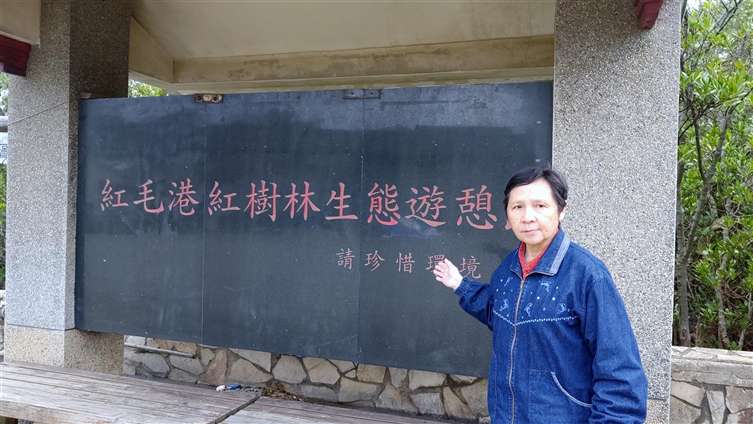 紅毛港紅樹林生態遊憩
請珍惜環境